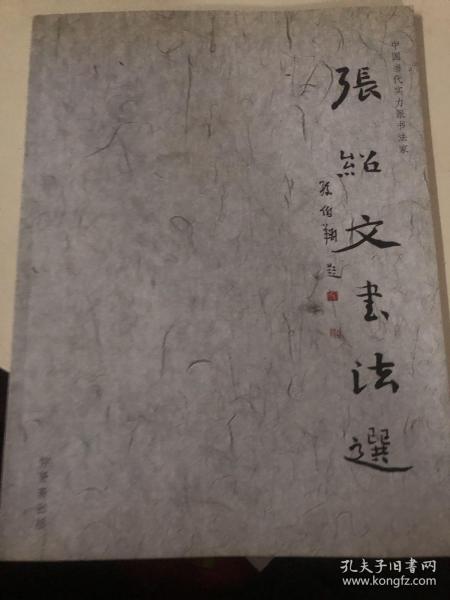 中国当代实力派书法家
張紹文書法選
孫伯翔題
孔夫子旧书网
www.kongfz.com